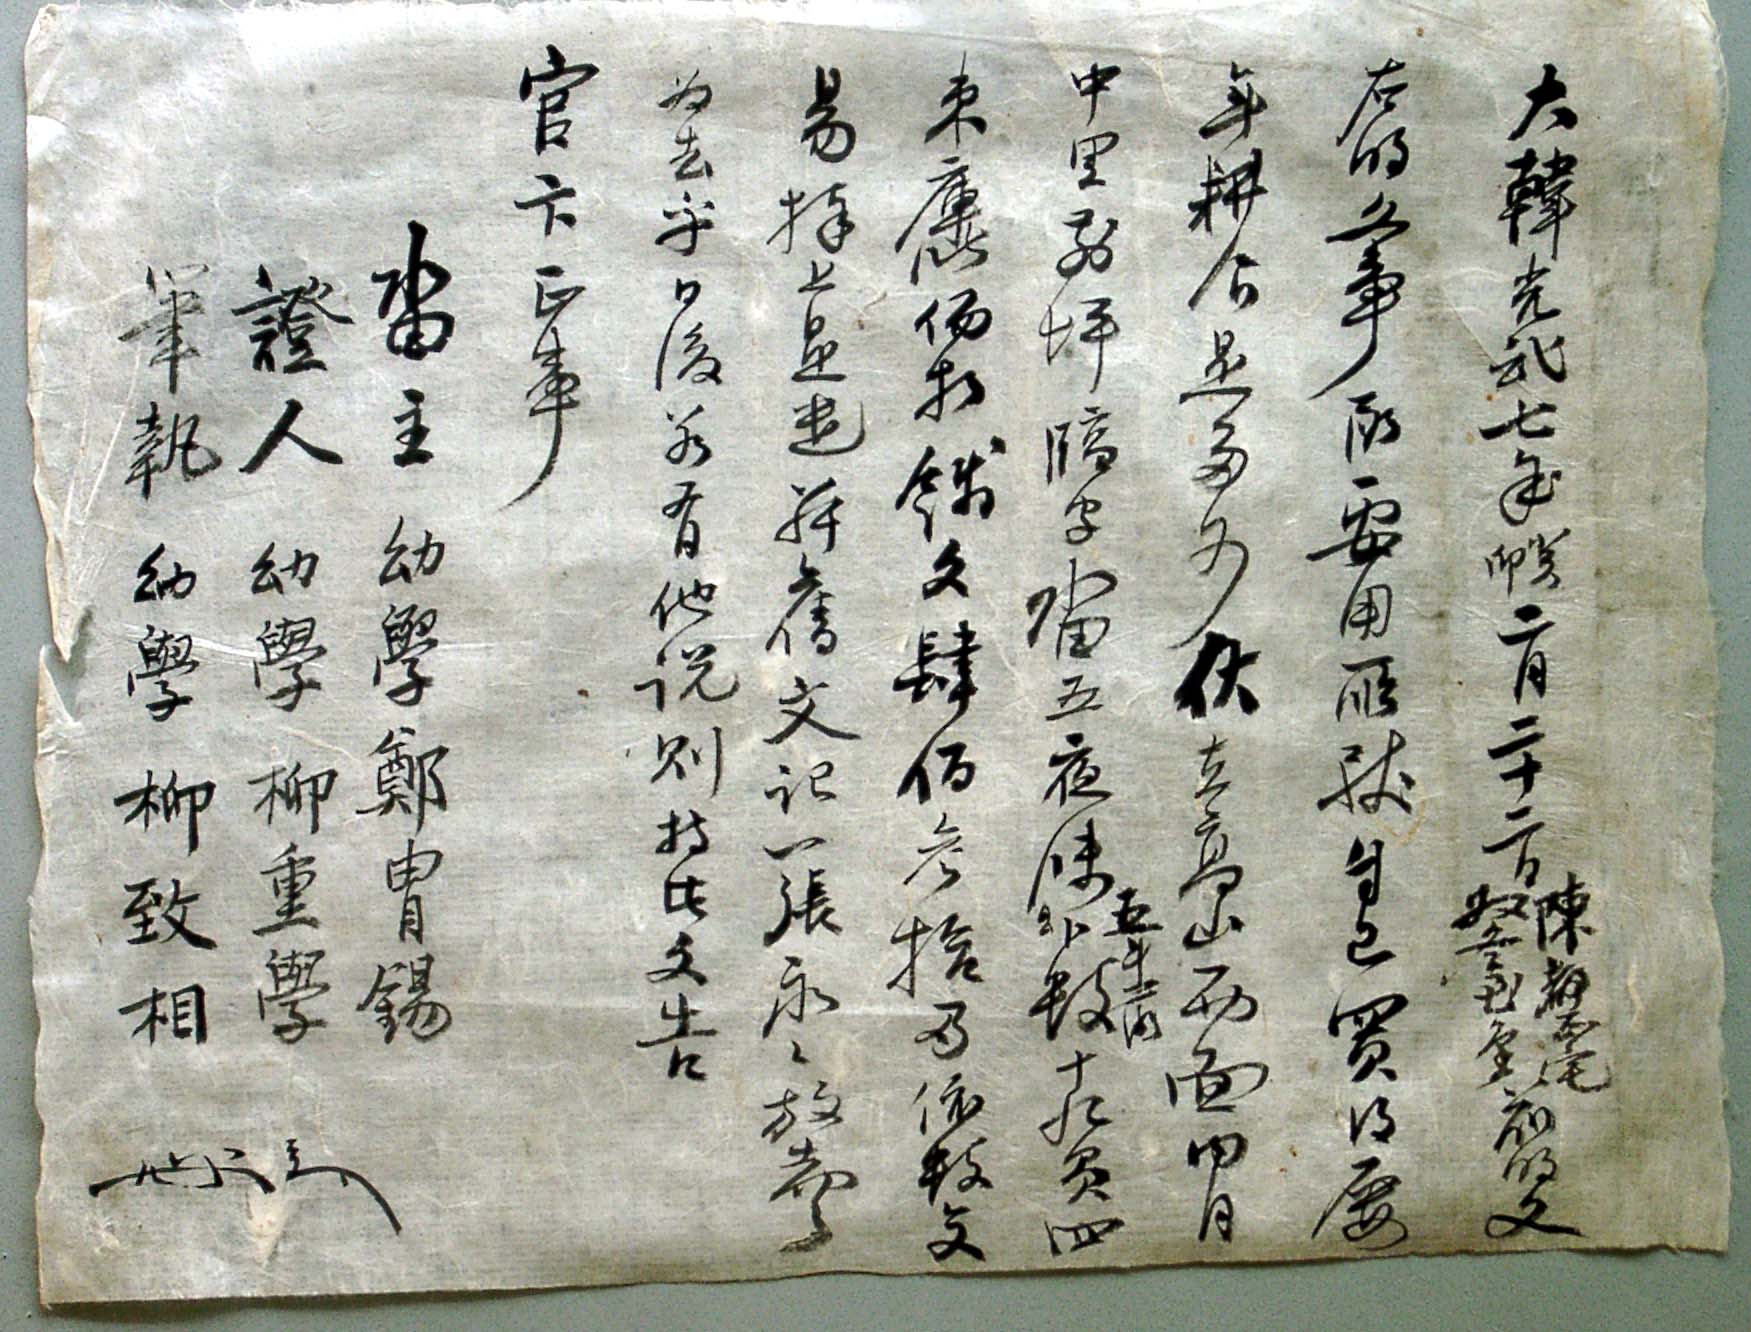 大韓光武七年癸卯二月二十二日陳 奴 前明文
右明文事段要用所致自己買得屢
年耕食是多可伏在高山西面甲月
中里 坪 字畓五夜味 五斗落 卜數十九負四
束廤価折錢文肆佰 拾 依數文
易捧上是遣 舊文記一張永永放賣
爲去乎日後若有他說則持此文告
官卞正事
畓主 幼學 鄭冑錫
證人 幼學 柳重學
筆執 幼學 柳致相